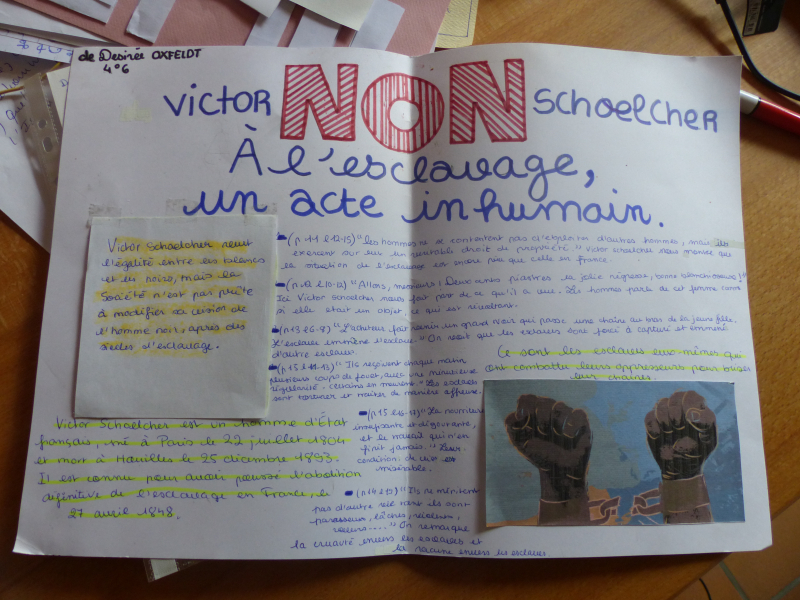 de Desirée OXFELDT
4°6
Victor NON Schoelcher
À l'esclavage,
un acte inhumain.
Victor Schoelcher veut
l'égalité entre les blancs
et les noirs, mais la
société n'est pas prête
à modifier sa vision de
l'homme noir, après des
siècles d'esclavage.
Victor Schoelcher est un homme d'État
français, né à Paris le 22 juillet 1804
et mort à Houilles le 25 décembre 1893.
Il est connu pour avoir poussé l'abolition
définitive de l'esclavage en France, le
27 avril 1848.
(p.11 l.12-15) "les hommes ne se contentent pas d'exploiter d'autres hommes, mais ils
exercent sur eux un véritable droit de propriété." Victor Schoelcher nous montre que
la situation de l'esclavage est encore pire que celle en France.
"Allons, messieurs! Deux cents piastres la jolie négresse, bonne blanchisseuse!"
Ici Victor Schoelcher nous fait part de ce qu'il a vu. Les hommes parle de cet femme comme
si elle était un objet, ce qui est révoltant.
(p.13 l.6-8) "L'acheteur fait venir un grand noir qui passe une chaîne au bras de la jeune fille.
L'esclave emmène l'esclave." On voit que les esclaves sont forcé à capturé et emmené
d'autre esclave.
(p.15 l.11-13) "Ils reçoivent chaque matin
plusieurs coups de fouet, avec une minutieuse
régularité. Certains en meurent." Les esclaves
sont torturer et traiter de manière affreuse.
"La nourriture
insuffisante et dégoutante,
et le travail qui n'en
finit jamais." Leur
condition de vie est
misérable.
(p.14 l.13) "Ils ne méritent
pas d'autre sort tant ils sont
paresseux, lâches, violents,
voleurs....." On remarque
la cruauté envers les esclaves et
la racisme envers les esclaves.
Ce sont les esclaves eux-mêmes qui
ont combattu leurs oppresseurs pour briser
leurs chaînes.